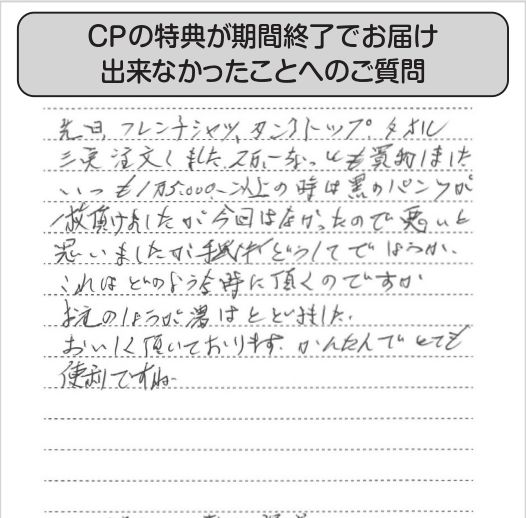 CPの特典が期間終了でお届け
出来なかったことへのご質問
先日、フレンチシャツ、タンクトップ、タオル
三点注文しました。
いつも1万5000、-以上の時は黒のパンツが
1枚頂けましたが今回はなかったので悪いと
思いましたがどうしてでしょうか、
これはどのような時に頂くのですか
しょうが湯はとどきました、
おいしく頂いております、かんたんでとても
便利ですね